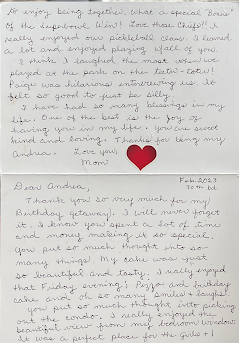 to enjoy being together. What a special "Bonus"
of the Superbowl Win! Love those Chiefs!! I
really enjoyed our pickleball class. I learned
a lot and enjoyed playing w/all of you.
I think I laughed the most when we
played at the park on the teeter-totter!
Paige was hilarious entertaining us. It
felt so good to just be silly.
I have had so many blessings in my
life. One of the best is the joy of
having you in my life. You are sweet
kind and loving. Thanks for being my
Andrea. Love you,
Mom
Feb. 2023
70th bd.
Dear Andrea,
Thank you so very much for my
Birthday getaway. I will never forget
it. I know you spent a lot of time
and money making it so special.
You put so much thought into so
many things. My cake was just
so beautiful and tasty. I really enjoyed
that Friday evening! Pizza and birthday
cake and oh so many smiles & laughs!
You put so much thought into picking
out the condo. I really enjoyed the
beautiful view from my bedroom window.
It was a perfect place for the girls & I